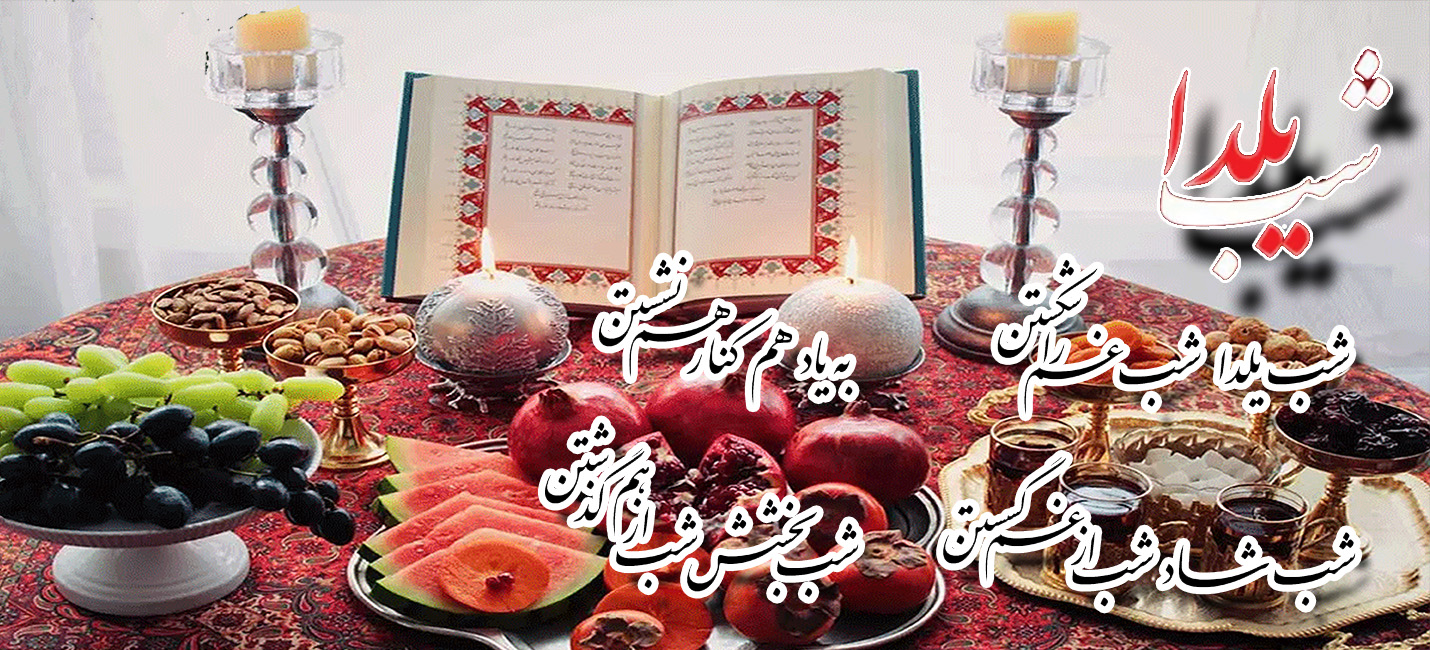 شب یلدا
شب یلدا شب غم را شکستن
به یاد هم کنار هم نشستن
شب شاد و شب از غم گسستن
شب بخشش شب از هم گذشتن